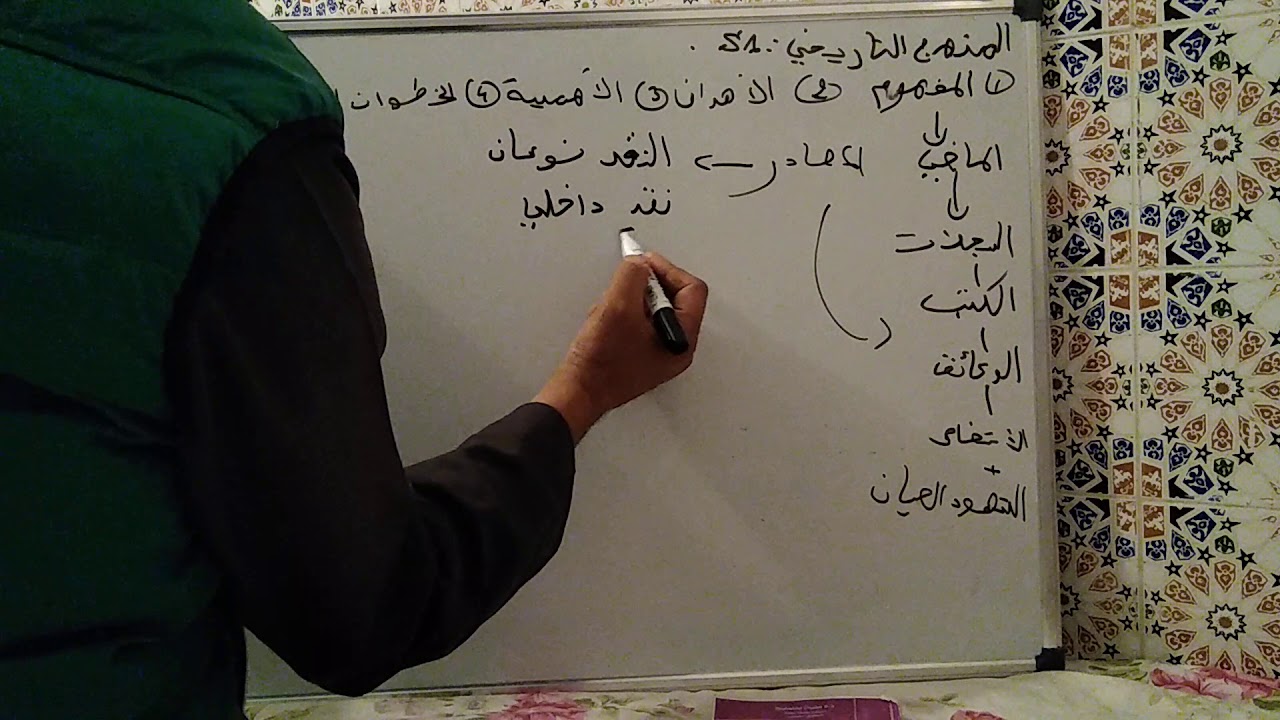 المنهج التاريخي: S1.
① المفهوم ② الأهداف ③ الأهمية ④ الخطوات
الماضي المصادر ← النقد نوعان
نقد داخلي
المجلات
الكتب
الوثائق
الأشخاص
+
الشهود العيان